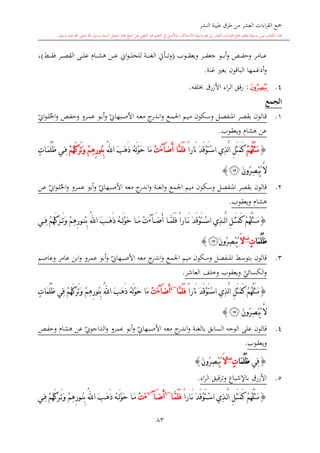 جمع القراءات العشر من طرق طيبة النشر
عـامر وحفـص وأبـو جعفـر ويعقـوب (وتـأتي الغنـة للحلـواني عـن هشـام علـى القصـر فقـط)،
وأدغمها الباقون بغير غنة.
٤. ﴿يُبْصِرُونَ﴾: رقق الراء الأزرق بخلفه.
الجمع
١. قالون بقصر المنفصل وسكون ميم الجمع واندرج معه الأصبهانيّ وأبو عمرو وحفص والحُلْوانيّ
عن هشام ويعقوب.
﴿ مَثَلُهُمْ كَمَثَلِ الَّذِي اسْتَوْقَدَ نَاراً فَلَمَّا أَضَاءَتْ مَا حَوْلَهُ ذَهَبَ اللهُ بِنُورِهِمْ وَتَرَكَهُمْ فِي ظُلُمَاتٍ
لَا يُبْصِرُونَ ۝١٧ ﴾
٢. قالون بقصر المنفصل وسكون ميم الجمع والغنة واندرج معه الأصبهانيّ وأبو عمرو والحُلْوانيّ عن
هشام ويعقوب.
﴿ مَثَلُهُمْ كَمَثَلِ الَّذِي اسْتَوْقَدَ نَاراً فَلَمَّا أَضَاءَتْ مَا حَوْلَهُ ذَهَبَ اللهُ بِنُورِهِمْ وَتَرَكَهُمْ فِي
ظُلُمَاتٍ لَا يُبْصِرُونَ ۝١٧ ﴾
٣. قالون بتوسط المنفصل وسكون ميم الجمع واندرج معه الأصبهانيّ وأبو عمرو وابن عامر وعاصم
والكسائيّ ويعقوب وخلف العاشر.
﴿ مَثَلُهُمْ كَمَثَلِ الَّذِي اسْتَوْقَدَ نَاراً فَلَمَّا أَضَاءَتْ مَا حَوْلَهُ ذَهَبَ اللهُ بِنُورِهِمْ وَتَرَكَهُمْ فِي ظُلُمَاتٍ
لَا يُبْصِرُونَ ۝١٧ ﴾
٤. قالون على الوجه السابق بالغنة واندرج معه الأصبهانيّ وأبو عمرو والداجونيّ عن هشام وحفص
ويعقوب.
﴿ فِي ظُلُمَاتٍ لَا يُبْصِرُونَ ﴾
٥. الأزرق بالإشباع وترقيق الراء.
﴿ مَثَلُهُمْ كَمَثَلِ الَّذِي اسْتَوْقَدَ نَاراً فَلَمَّا أَضَاءَتْ مَا حَوْلَهُ ذَهَبَ اللهُ بِنُورِهِمْ وَتَرَكَهُمْ فِي
٨٣